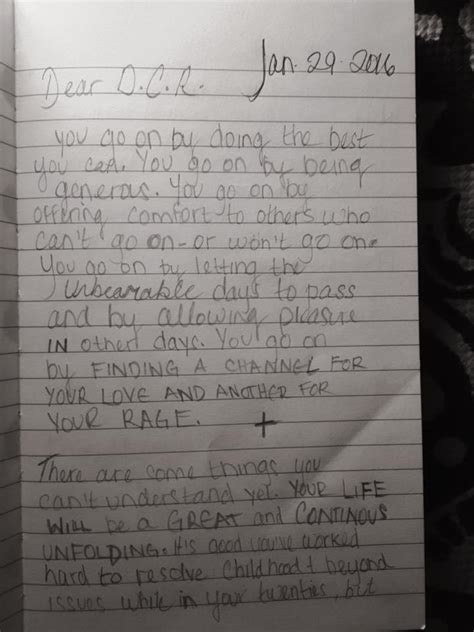 Jan. 29. 2016
Dear D.C.R.
You go on by doing the best
you can. You go on by being
generous. You go on by
offering comfort to others who
can't go on - or won't go on.
You go on by letting the
unbearable days to pass
and by allowing pleasure
IN other days. You go on
by FINDING A CHANNEL FOR
YOUR LOVE AND ANOTHER FOR
YOUR RAGE. +
There are come things you
can't understand yet. YOUR LIFE
WILL be a GREAT and CONTINOUS
UNFOLDING. It's good you've worked
hard to resolve childhood + beyond
issues while in your twenties, but